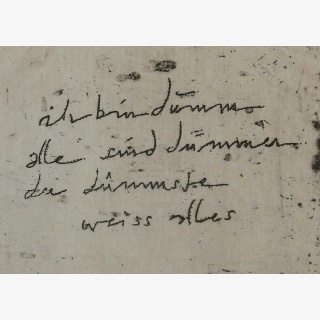 ich bin dumm
alle sind dümmer
der dümmste
weiss alles